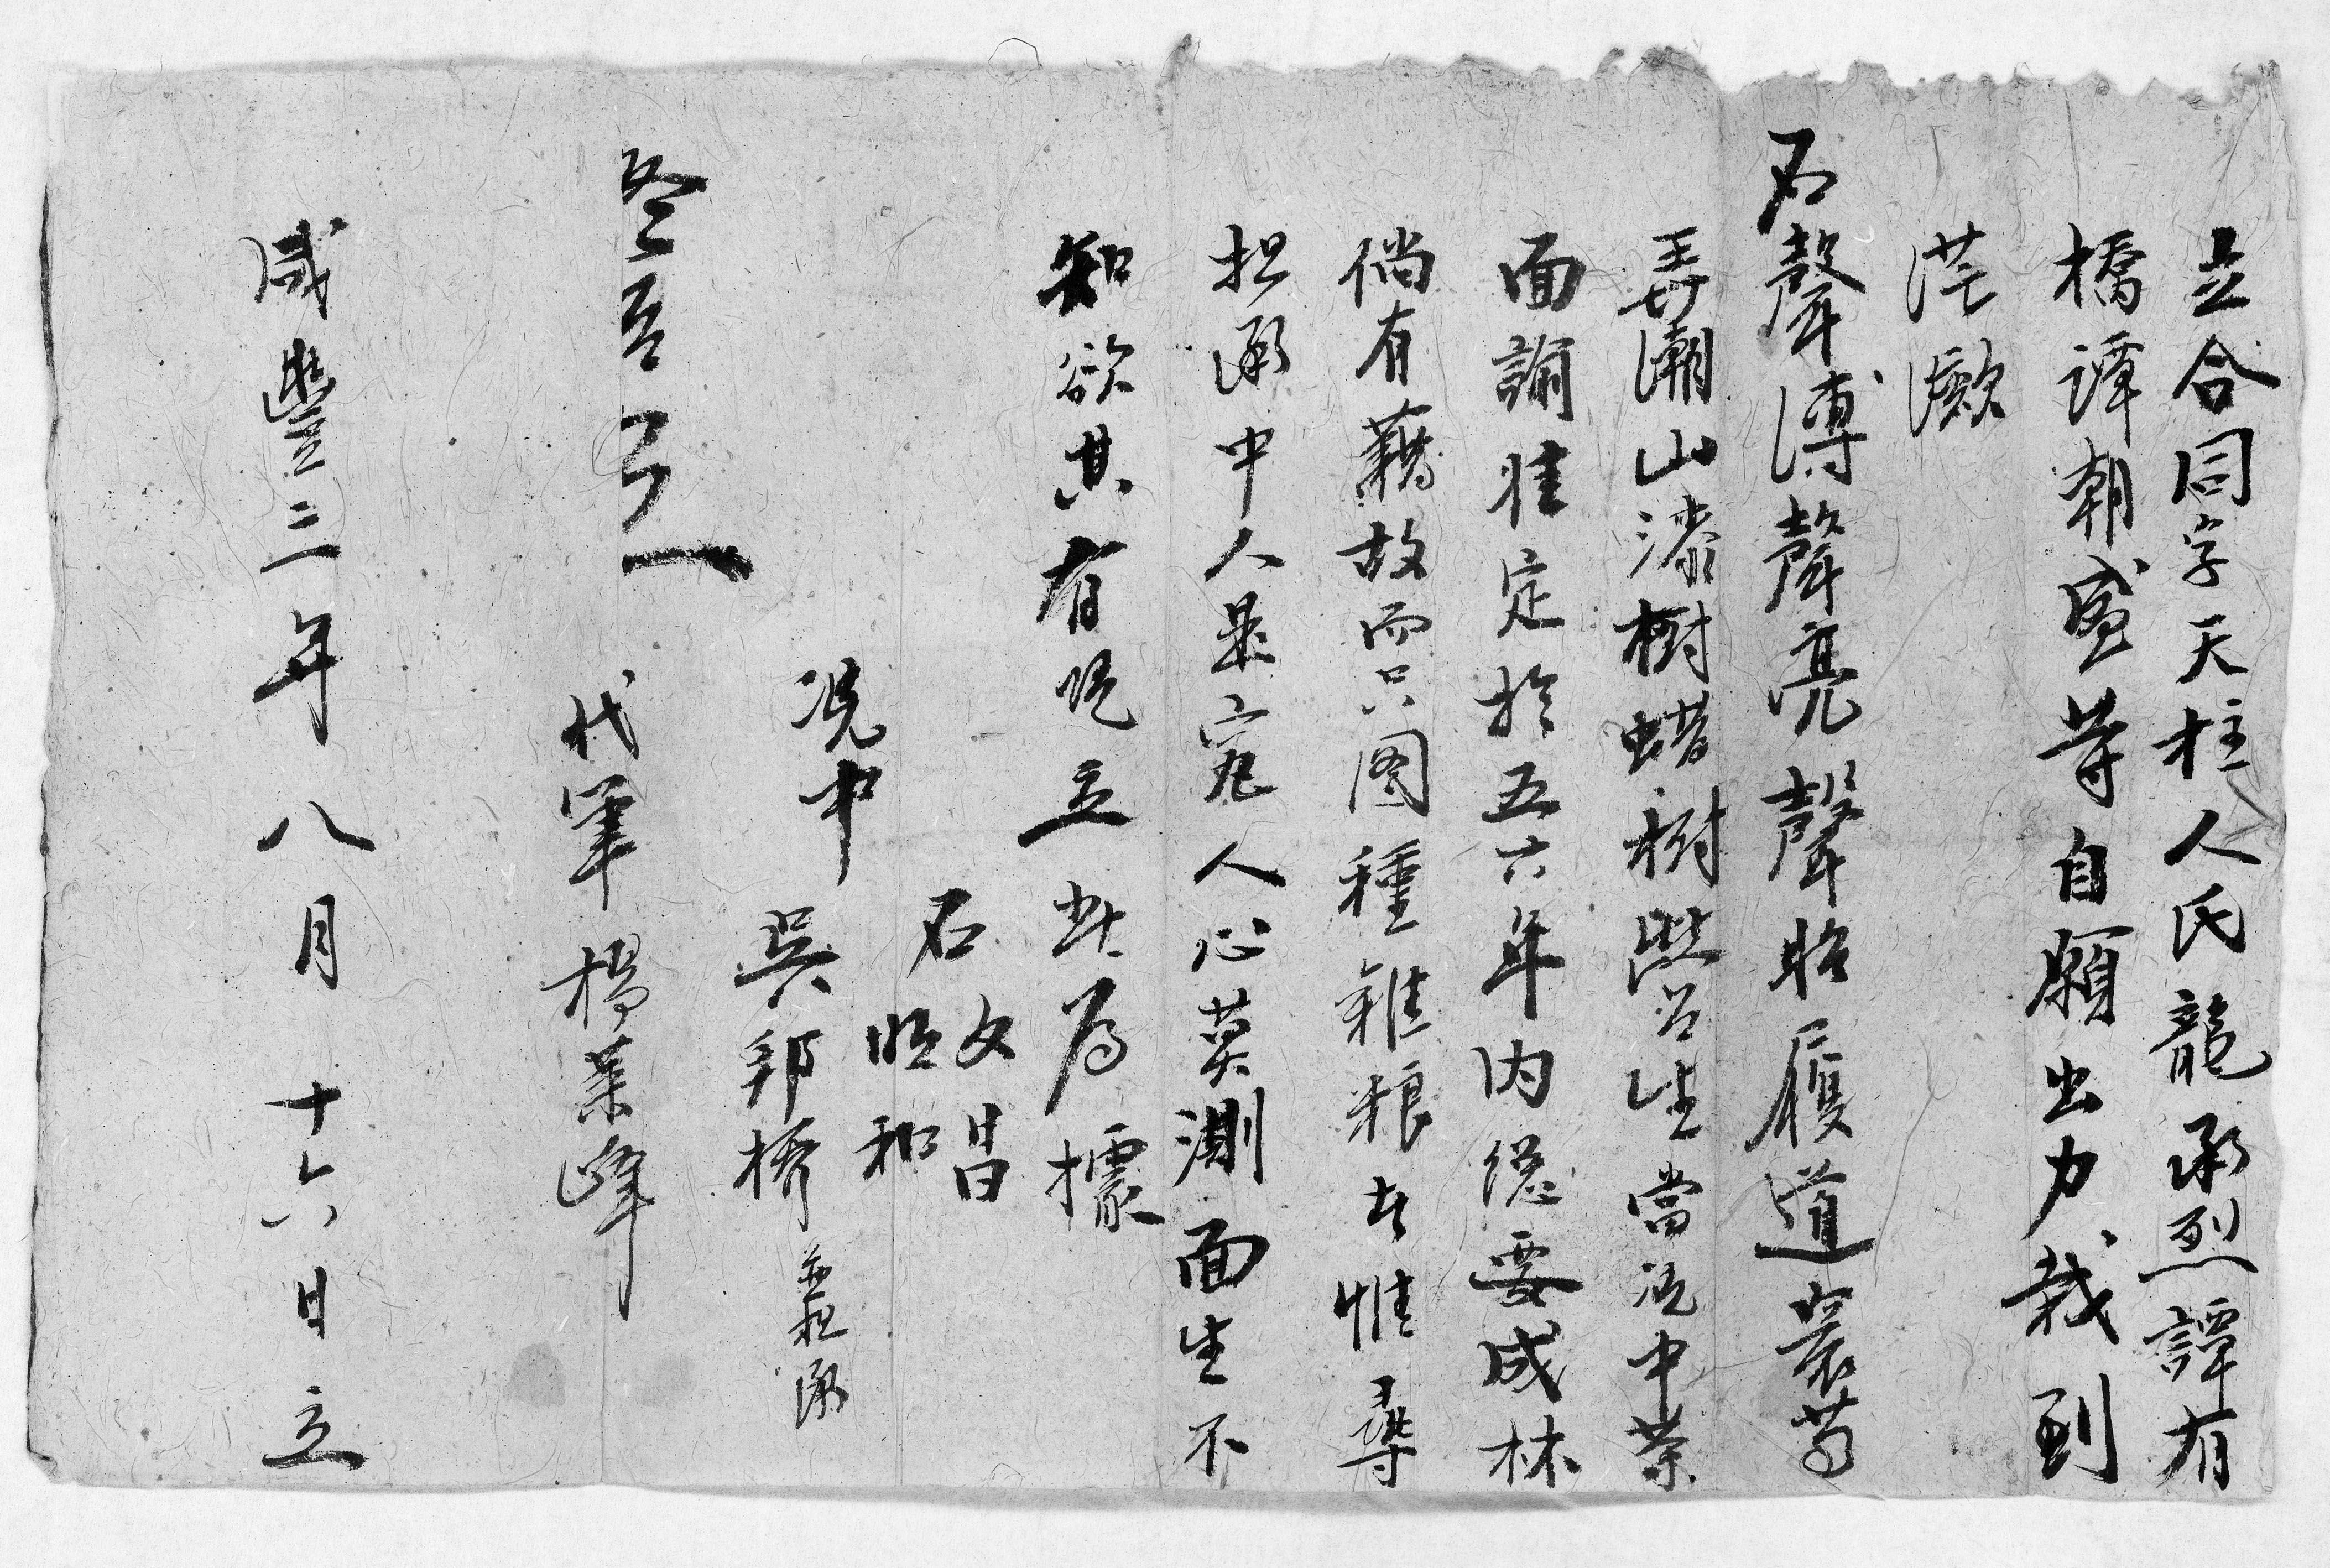 立合同字天柱人氏龍承烈譚有
橋譚朝盛等自願出力栽到
茫漱
石聲溥聲亮聲昭履道等
弄潮山漆樹蜡樹當憑中業
面論准定於五六年內總要成林
倘有藉故而只图種雜粮者惟尋
担承中人是究人心莫測面生不
知欲其有凭立此為據
石文昌
昭和
凭中
吳邦橋並担承
代筆楊業峰
咸豐三年八月十六日立